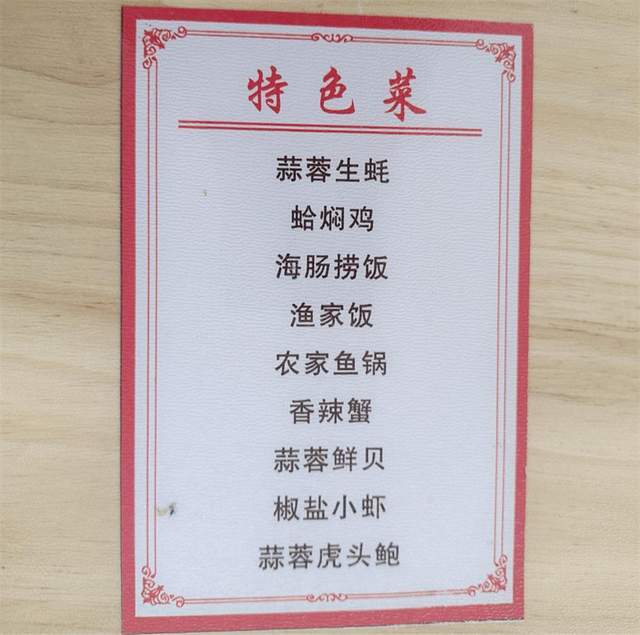 特色菜
蒜蓉生蚝
蛤焖鸡
海肠捞饭
渔家饭
农家鱼锅
香辣蟹
蒜蓉鲜贝
椒盐小虾
蒜蓉虎头鲍